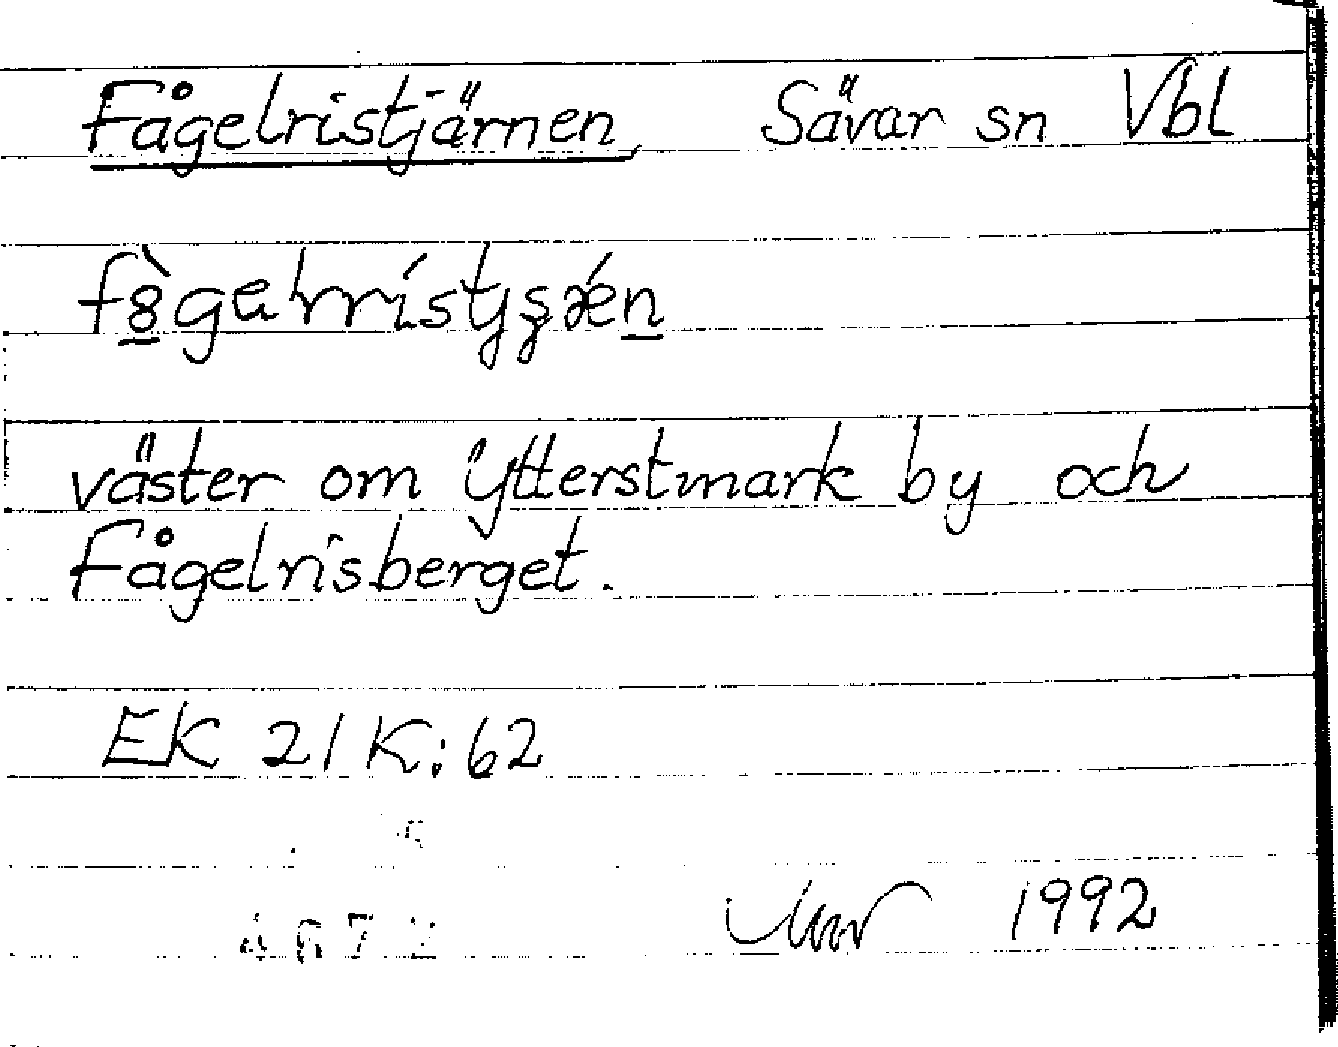 Fågelristjärnen, Sävar sn Vbl
väster om Ytterstmark by och
Fågelrisberget.
EK 21 K:62
1992